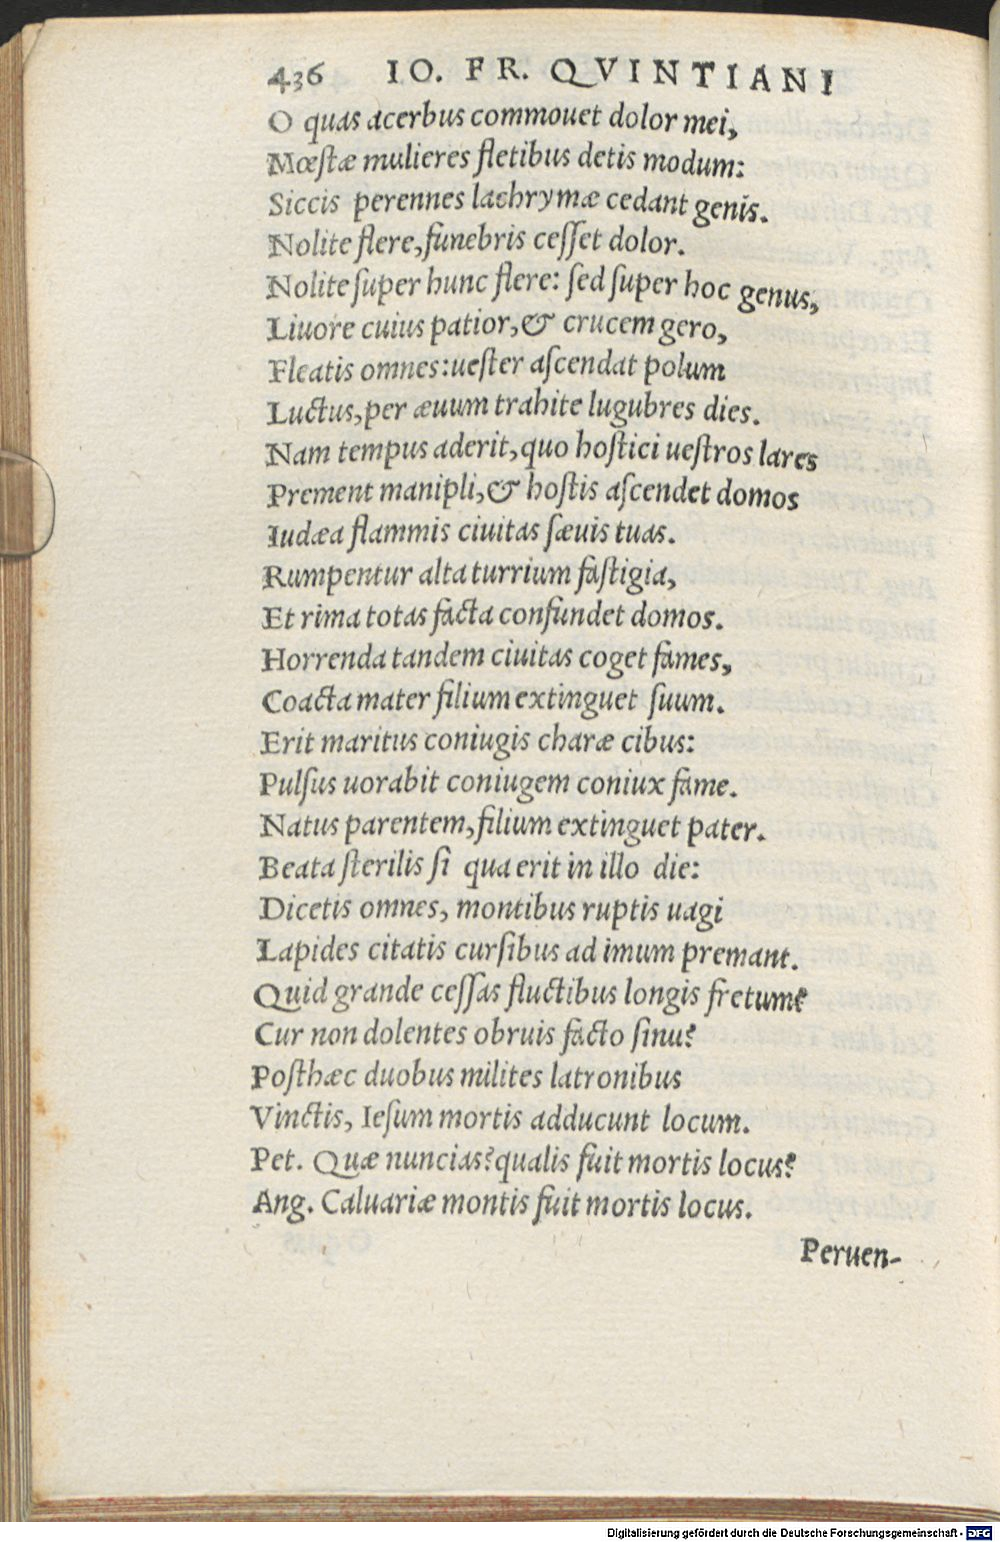 436 IO. FR. QVINTIANI
O quas acerbus commouet dolor mei,
Mœſtæ mulieres fletibus detis modum:
Siccis perennes lachrymæ cedant genis.
Nolite flere, funebris ceſſet dolor.
Nolite ſuper hunc flere: ſed ſuper hoc genus,
Liuore cuius patior, & crucem gero,
Fleatis omnes: ueſter aſcendat polum
Luctus, per æuum trahite lugubres dies.
Nam tempus aderit, quo hoſtici ueſtros lares
Prement manipli, & hoſtis aſcendet domos
Iudæa flammis ciuitas ſæuis tuas.
Rumpentur alta turrium faſtigia,
Et rima totas facta confundet domos.
Horrenda tandem ciuitas coget fames,
Coacta mater filium extinguet ſuum.
Erit maritus coniugis charæ cibus:
Pulſus uorabit coniugem coniux fame.
Natus parentem, filium extinguet pater.
Beata ſterilis ſi qua erit in illo die:
Dicetis omnes, montibus ruptis uagi
Lapides citatis curſibus ad imum premant.
Quid grande ceſſas fluctibus longis fretum?
Cur non dolentes obruis facto ſinu?
Poſthæc duobus milites latronibus
Vinctis, Ieſum mortis adducunt locum.
Pet. Quæ nuncias? qualis fuit mortis locus?
Ang. Caluariæ montis fuit mortis locus.
Peruen-
Digitalisierung gefördert durch die Deutsche Forschungsgemeinschaft - DFG